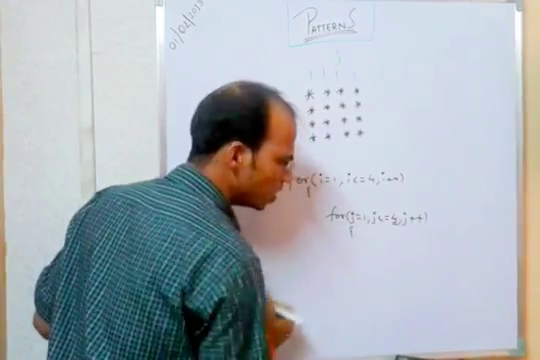 01/02/2017
PATTERNS
j
1 1 1 1
* * * *
* * * *
* * * *
* * * *
for(i=1, i<=4, i++)
{
for(j=1, j<=4, j++)
{